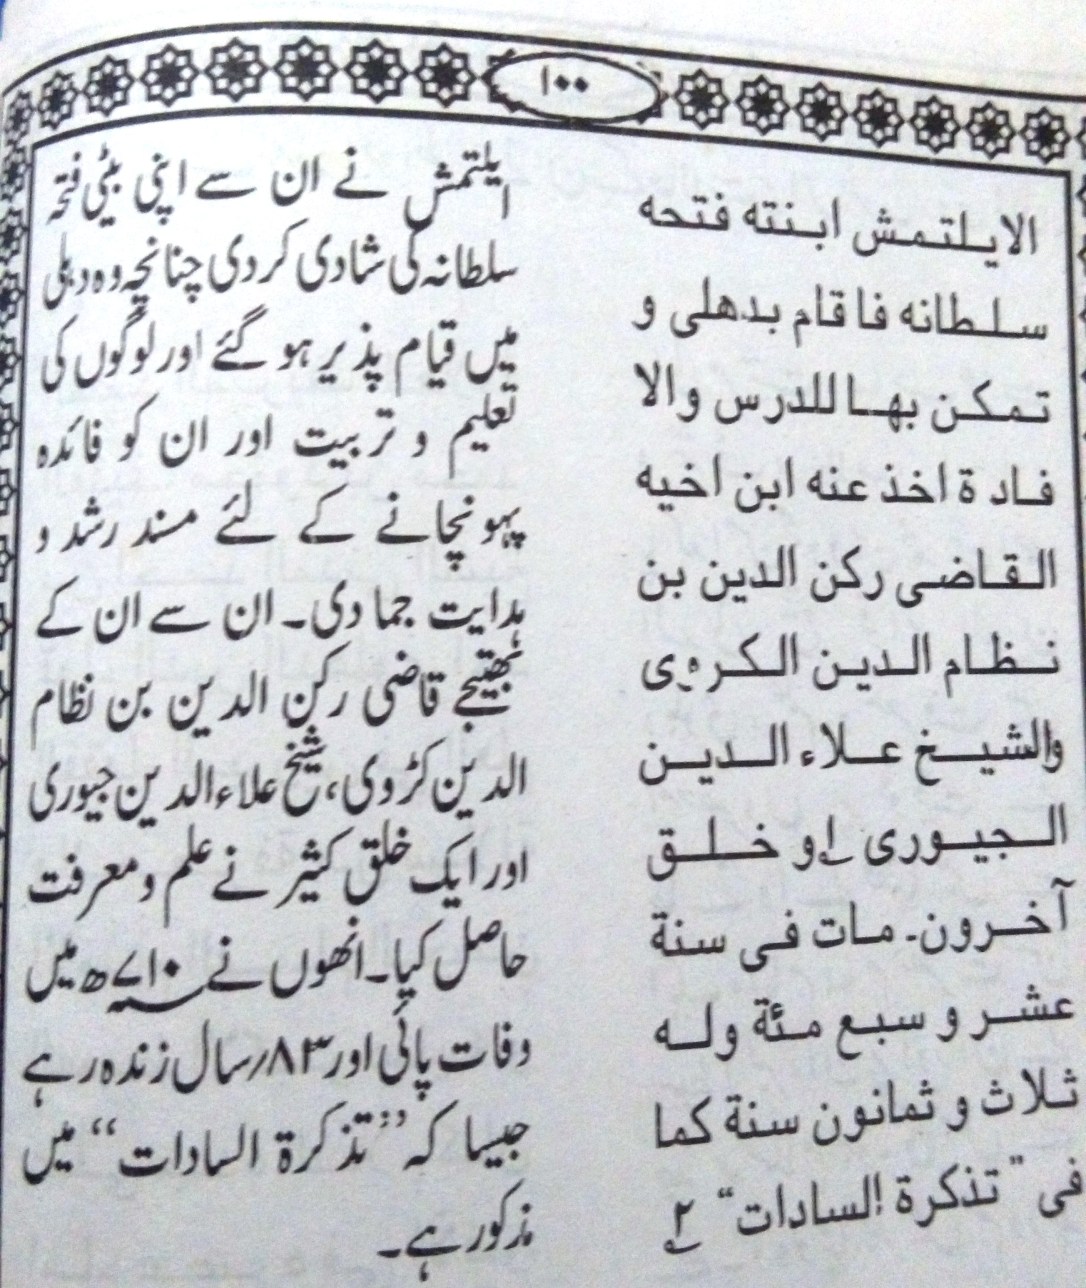 ۱۰۰
الايلتمش ابنته فتحه
سلطانه فاقام بدهلی و
تمكن بها للدرس والا
فادة اخذ عنه ابن اخيه
القاضی ركن الدين بن
نظام الدين الكروی
والشيخ علاء الدين
الجيوری ۱ و خلق
آخرون۔ مات فی سنة
عشر و سبع مئة وله
ثلاث و ثمانون سنة كما
فی "تذكرة السادات" ۲
ایلتمش نے ان سے اپنی بیٹی فتحہ
سلطانہ کی شادی کردی چنانچہ وہ دہلی
میں قیام پذیر ہو گئے اور لوگوں کی
تعلیم و تربیت اور ان کو فائدہ
پہونچانے کے لئے مسند رشد و
ہدایت جما دی۔ ان سے ان کے
بھتیجے قاضی رکن الدین بن نظام
الدین کڑوی، شیخ علاء الدین جیوری
اور ایک خلق کثیر نے علم و معرفت
حاصل کیا۔ انھوں نے ۷۱۰؁ھ میں
وفات پائی اور ۸۳؍سال زندہ رہے
جیسا کہ ”تذکرۃ السادات“ میں
مذکور ہے۔